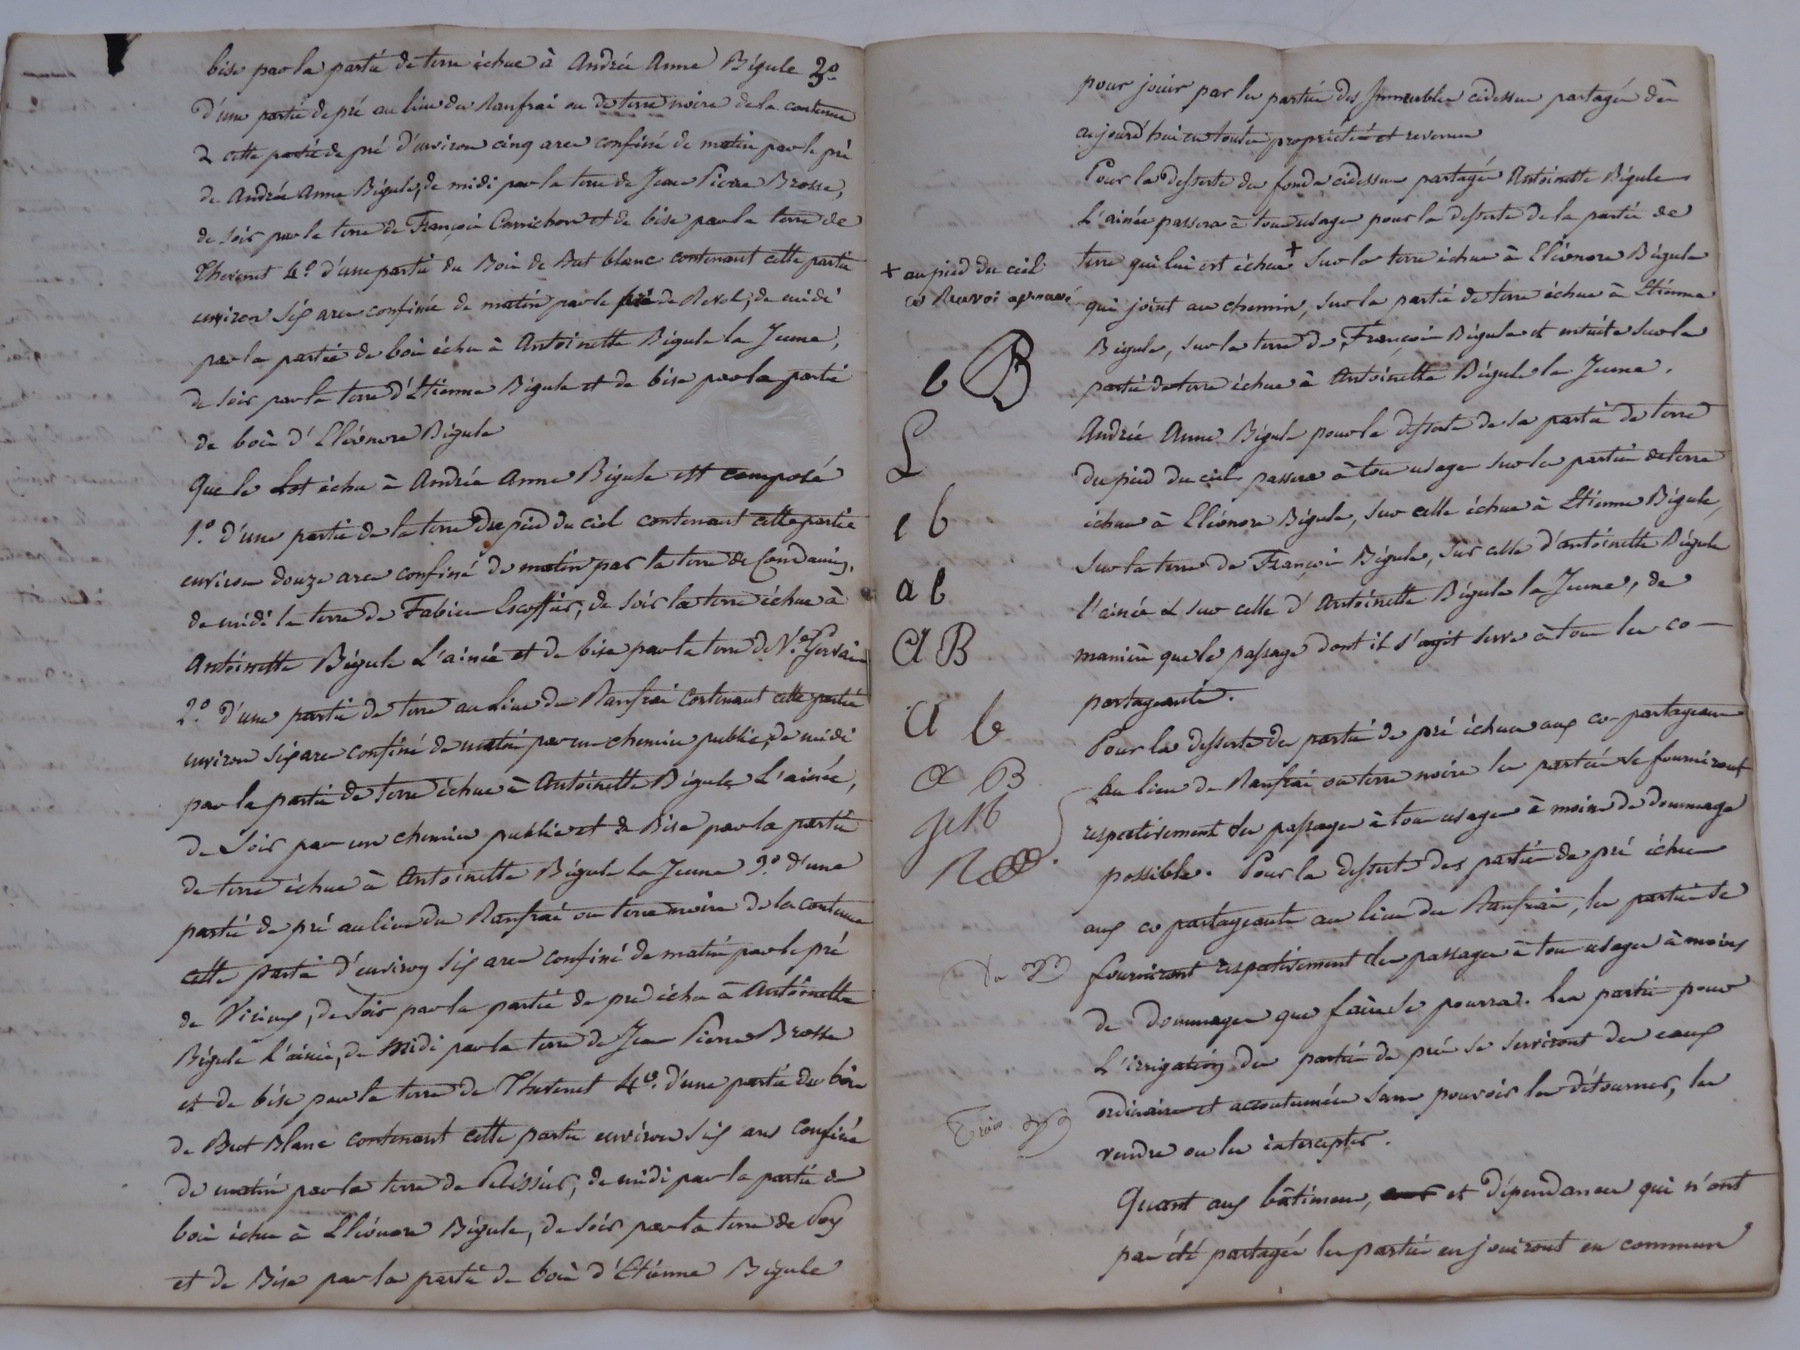 bise par la partie de terre échue à Andrée Anne Bégule 3o
d'une partie de pré au lieu du Ranfrai ou de terre noire de la contenue
cette partie de pré d'environ cinq ares confiné de matin par le pré
de Andrée Anne Bégule, de midi par la terre de Jean Pierre Brosse,
de soir par la terre de François Carrichon et de bise par la terre de
Thevenet 4o d'une partie du Bois de But blanc contenant cette partie
environ six ares confinée de matin par le pré de Revol, de midi
par la partie de bois échue à Antoinette Bégule la Jeune,
de soir par la terre d'Etienne Bégule et de bise par la partie
de bois d'Eléonore Bégule
Que le Lot échu à Andrée Anne Bégule est composé
1o. d'une partie de la terre du pied du ciel contenant cette partie
environ douze ares confiné de matin par la terre de Condamin,
de midi la terre de Fabien Escoffier, de soir la terre échue à
Antoinette Bégule L'ainée et de bise par la terre de Ve. Gervais
2o. d'une partie de terre au Lieu de Ranfrai contenant cette partie
environ six ares confiné de matin par un chemin public, de midi
par la partie de terre échue à Antoinette Bégule L'ainée,
de Soir par un chemin public et de Bise par la partie
de terre échue à Antoinette Bégule la Jeune 3o. d'une
partie de pré au lieu du Ranfrai ou terre noire de la contenue
cette partie d'environ six ares confiné de matin par le pré
de, de soir par la partie de pré échu à Antoinette
Bégule L'ainée, de Midi par la terre de Jean Pierre Brosse
et de bise par la terre de Thevenet 4o. d'une partie du bois
de But Blanc contenant cette partie environ six ares confinée
de matin par la terre de Pelissier, de midi par la partie de
bois échue à Eléonore Bégule, de soir par la terre de
et de Bise par la partie de bois d'Etienne Bégule
pour jouir par les parties des Immeubles cidessus partagés dès
aujourd'hui en toutes propriétés et revenus
Pour la desserte des fonds cidessus partagés Antoinette Bégule
L'ainée passera à tous usages pour la desserte de la partie de
terre qui lui est échue + sur la terre échue à Eléonore Bégule
+ au pied du ciel
renvoi aprouvé
qui joint au chemin, sur la partie de terre échue à Etienne
Bégule, sur la terre de François Bégule et ensuite sur la
partie de terre échue à Antoinette Bégule la Jeune.
Andrée Anne Bégule pour la desserte de sa partie de terre
du pied du ciel passera à tous usages sur les parties de terre
échues à Eléonore Bégule, sur celle échue à Etienne Bégule,
sur la terre de François Bégule, sur celle d'antoinette Bégule
l'ainée & sur celle d'Antoinette Bégule la Jeune, de
manière que le passage dont il s'agit serve à tous les co-
partageants.
Pour la desserte des parties de pré échues aux co-partageans
au lieu de Ranfrai ou terre noire les parties se fourniront
respectivement des passages à tous usages à moins de dommage
possible. Pour la desserte des parties de pré échues
aux co partageants au lieu du Ranfrai, les parties se
fourniront respectivement des passages à tous usages à moins
de dommages que faire se pourra. Les parties pour
L'irrigation des parties de pré se serviront des eaux
ordinaires et accoutumées sans pouvoir les détourner, les
vendre ou les intercepter.
Quant aux bâtimens, et dépendances qui n'ont
pas été partagés les parties en jouiront en commun
e B
L
e b
a b
A B
A b
a B